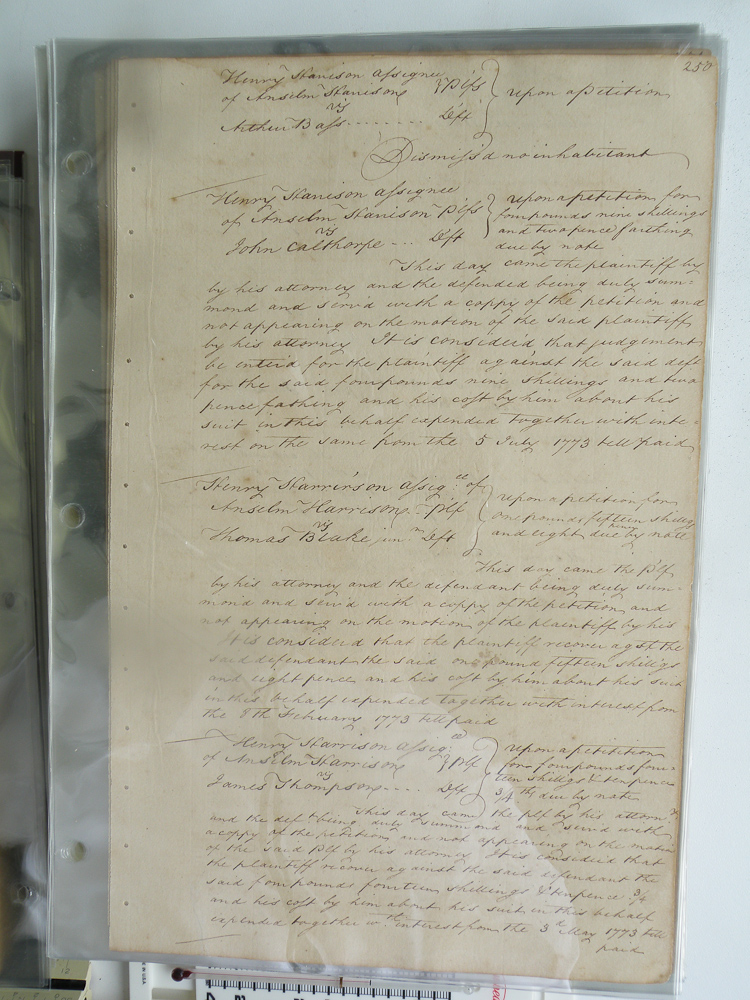 250
Henry Harrison assignee
of Anselm Harrison } Plfs } upon a petition
vs
Arthur Bass ........ Deft
Dismiss'd no inhabitant
Henry Harrison assignee
of Anselm Harrison Plfs
vs
John Calthorpe ... Deft
upon a petition for
four pounds nine shillings
and two pence farthing
due by note
This day came the plaintiff by
by his attorney and the defended being duly sum=
mond and serv'd with a coppy of the petition and
not appearing on the motion of the said plaintiff
by his attorney It is consider'd that judgement
be enter'd for the plaintiff against the said deft
for the said four pounds nine shillings and two
pence fathing and his cost by him about his
suit in this behalf expended together with inte-
rest on the same from the 5 July 1773 tell paid
Henry Harrirson assig.ee of
Anselm Harrison .. Plf
vs
Thomas Blake jun.r Deft
upon a petition for
one pounds fifteen shillgs
and eight pence due by note
This day came the plf
by his attorney and the defendant being duly sum-
mond and serv'd with a coppy of the petition and
not appearing on the motion of the plaintiff by his
It is considerd that the plaintiff recover agst the
said defendant the said one pound fifteen shillgs
and eight pence and his cost by him about his suit
in this behalf expended together with interest from
the 8th February 1773 till paid
Henry Harrison assig.ee
of Anselm Harrison } Plf
vs
James Thompson .... Deft
upon a petition
for four pounds four-
teen shillgs & ten pence
3/4 ths due by note
This day came the plf by his attorn.y
and the deft being duly summond and serv'd with
a coppy of the petition and not appearing on the motion
of the said Plf by his attorney It is considerd that
the plaintiff recover against the said defendant the
said four pounds fourteen shillings & ten pence 3/4
and his cost by him about his suit in this behalf
expended together w.th interest from the 3d May 1773 till
paid